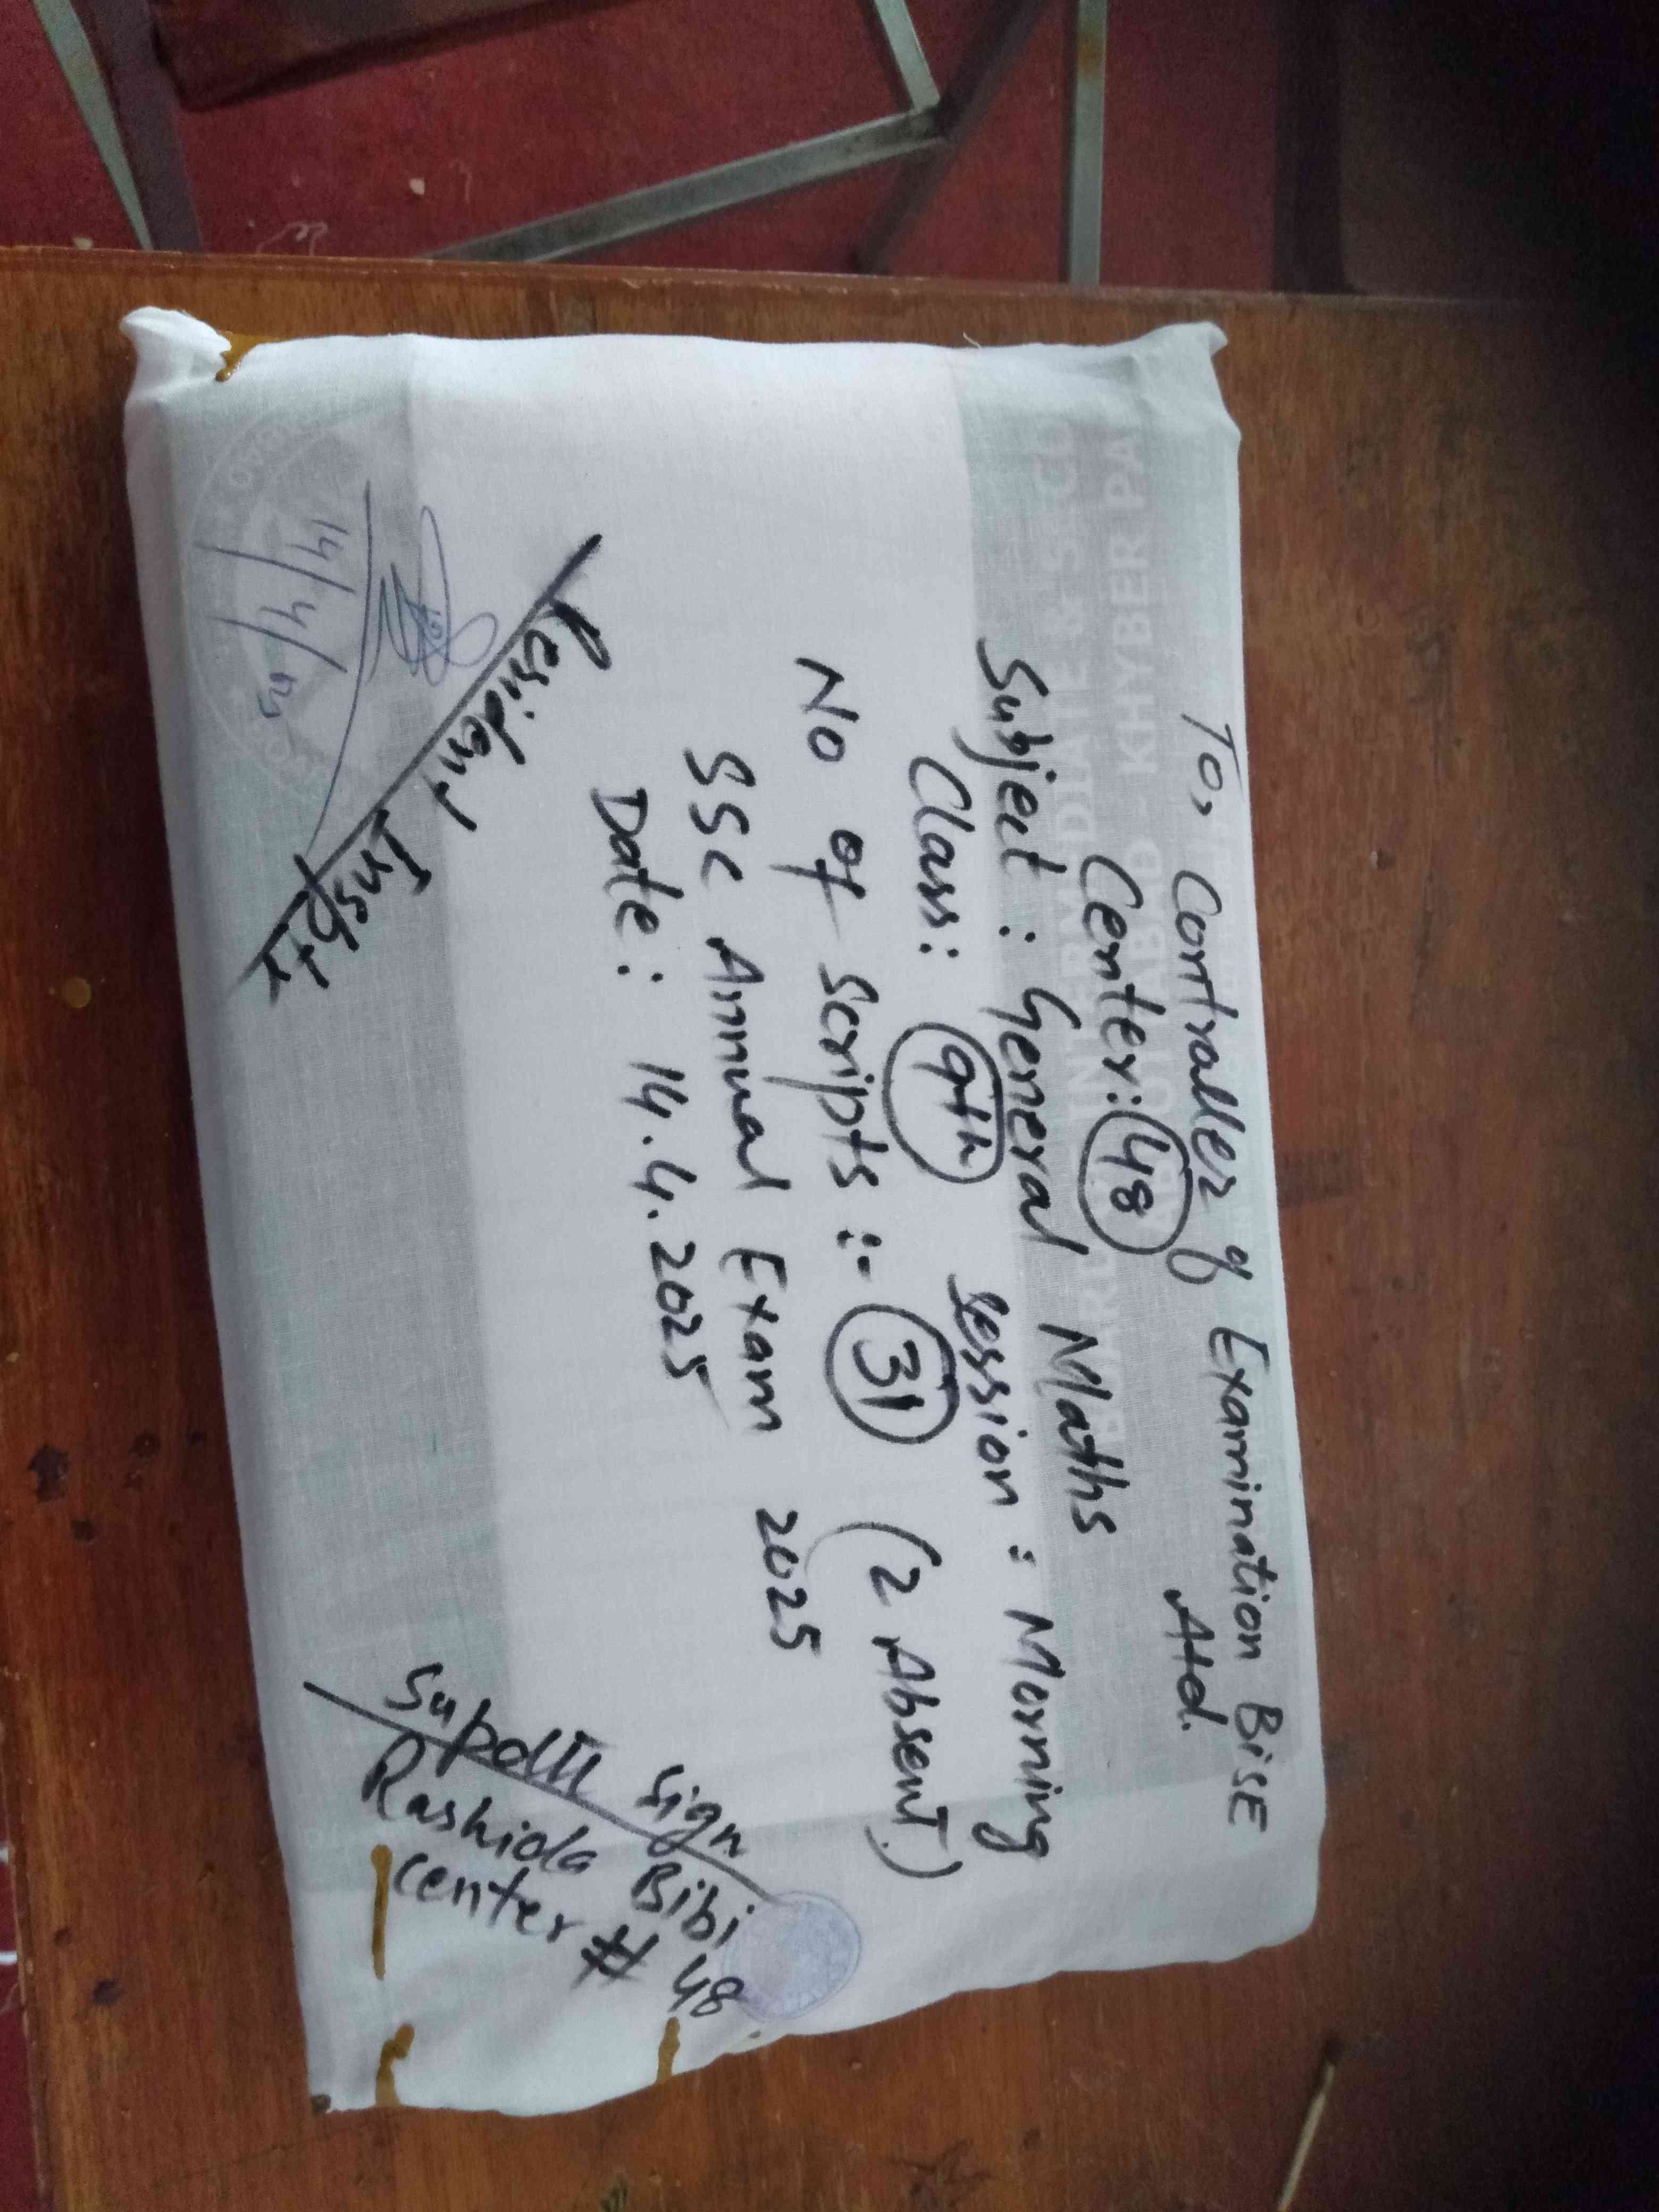 To, Controller of Examination BISE
Atd.
Center: 48
Subject: General Maths
Class: 9th Session: Morning
No of Scripts :- 31 (2 Absent)
SSC Annual Exam 2025
Date: 14.4.2025
Resident Inspt
14/4/25
Supdtt Sign
Rashida Bibi
center # 48
KHYBER PA